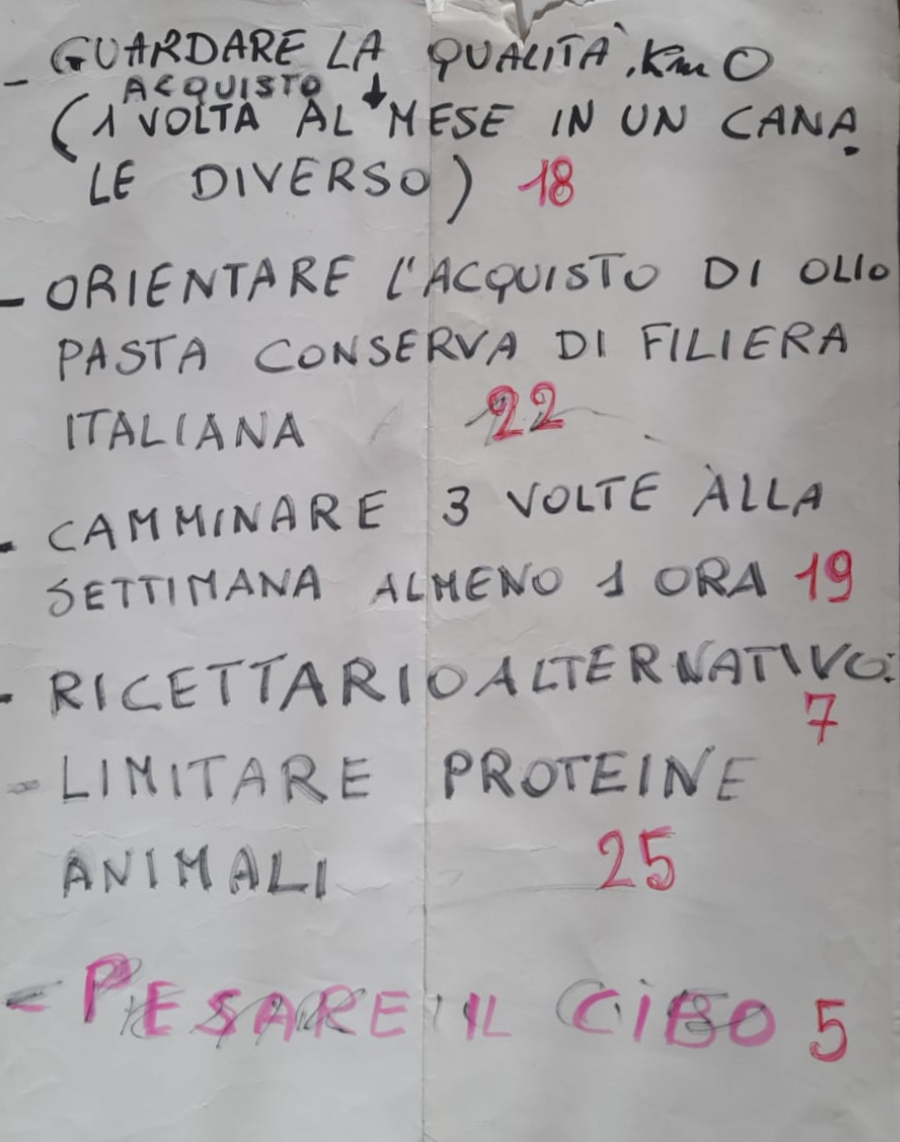 - GUARDARE LA QUALITÀ, Km 0
ACQUISTO ↓
(1 VOLTA AL MESE IN UN CANA
LE DIVERSO) 18
- ORIENTARE L'ACQUISTO DI OLIO
PASTA CONSERVA DI FILIERA
ITALIANA 22
- CAMMINARE 3 VOLTE ALLA
SETTIMANA ALMENO 1 ORA 19
- RICETTARIO ALTERNATIVO:
7
- LIMITARE PROTEINE
ANIMALI 25
- PESARE IL CIBO 5